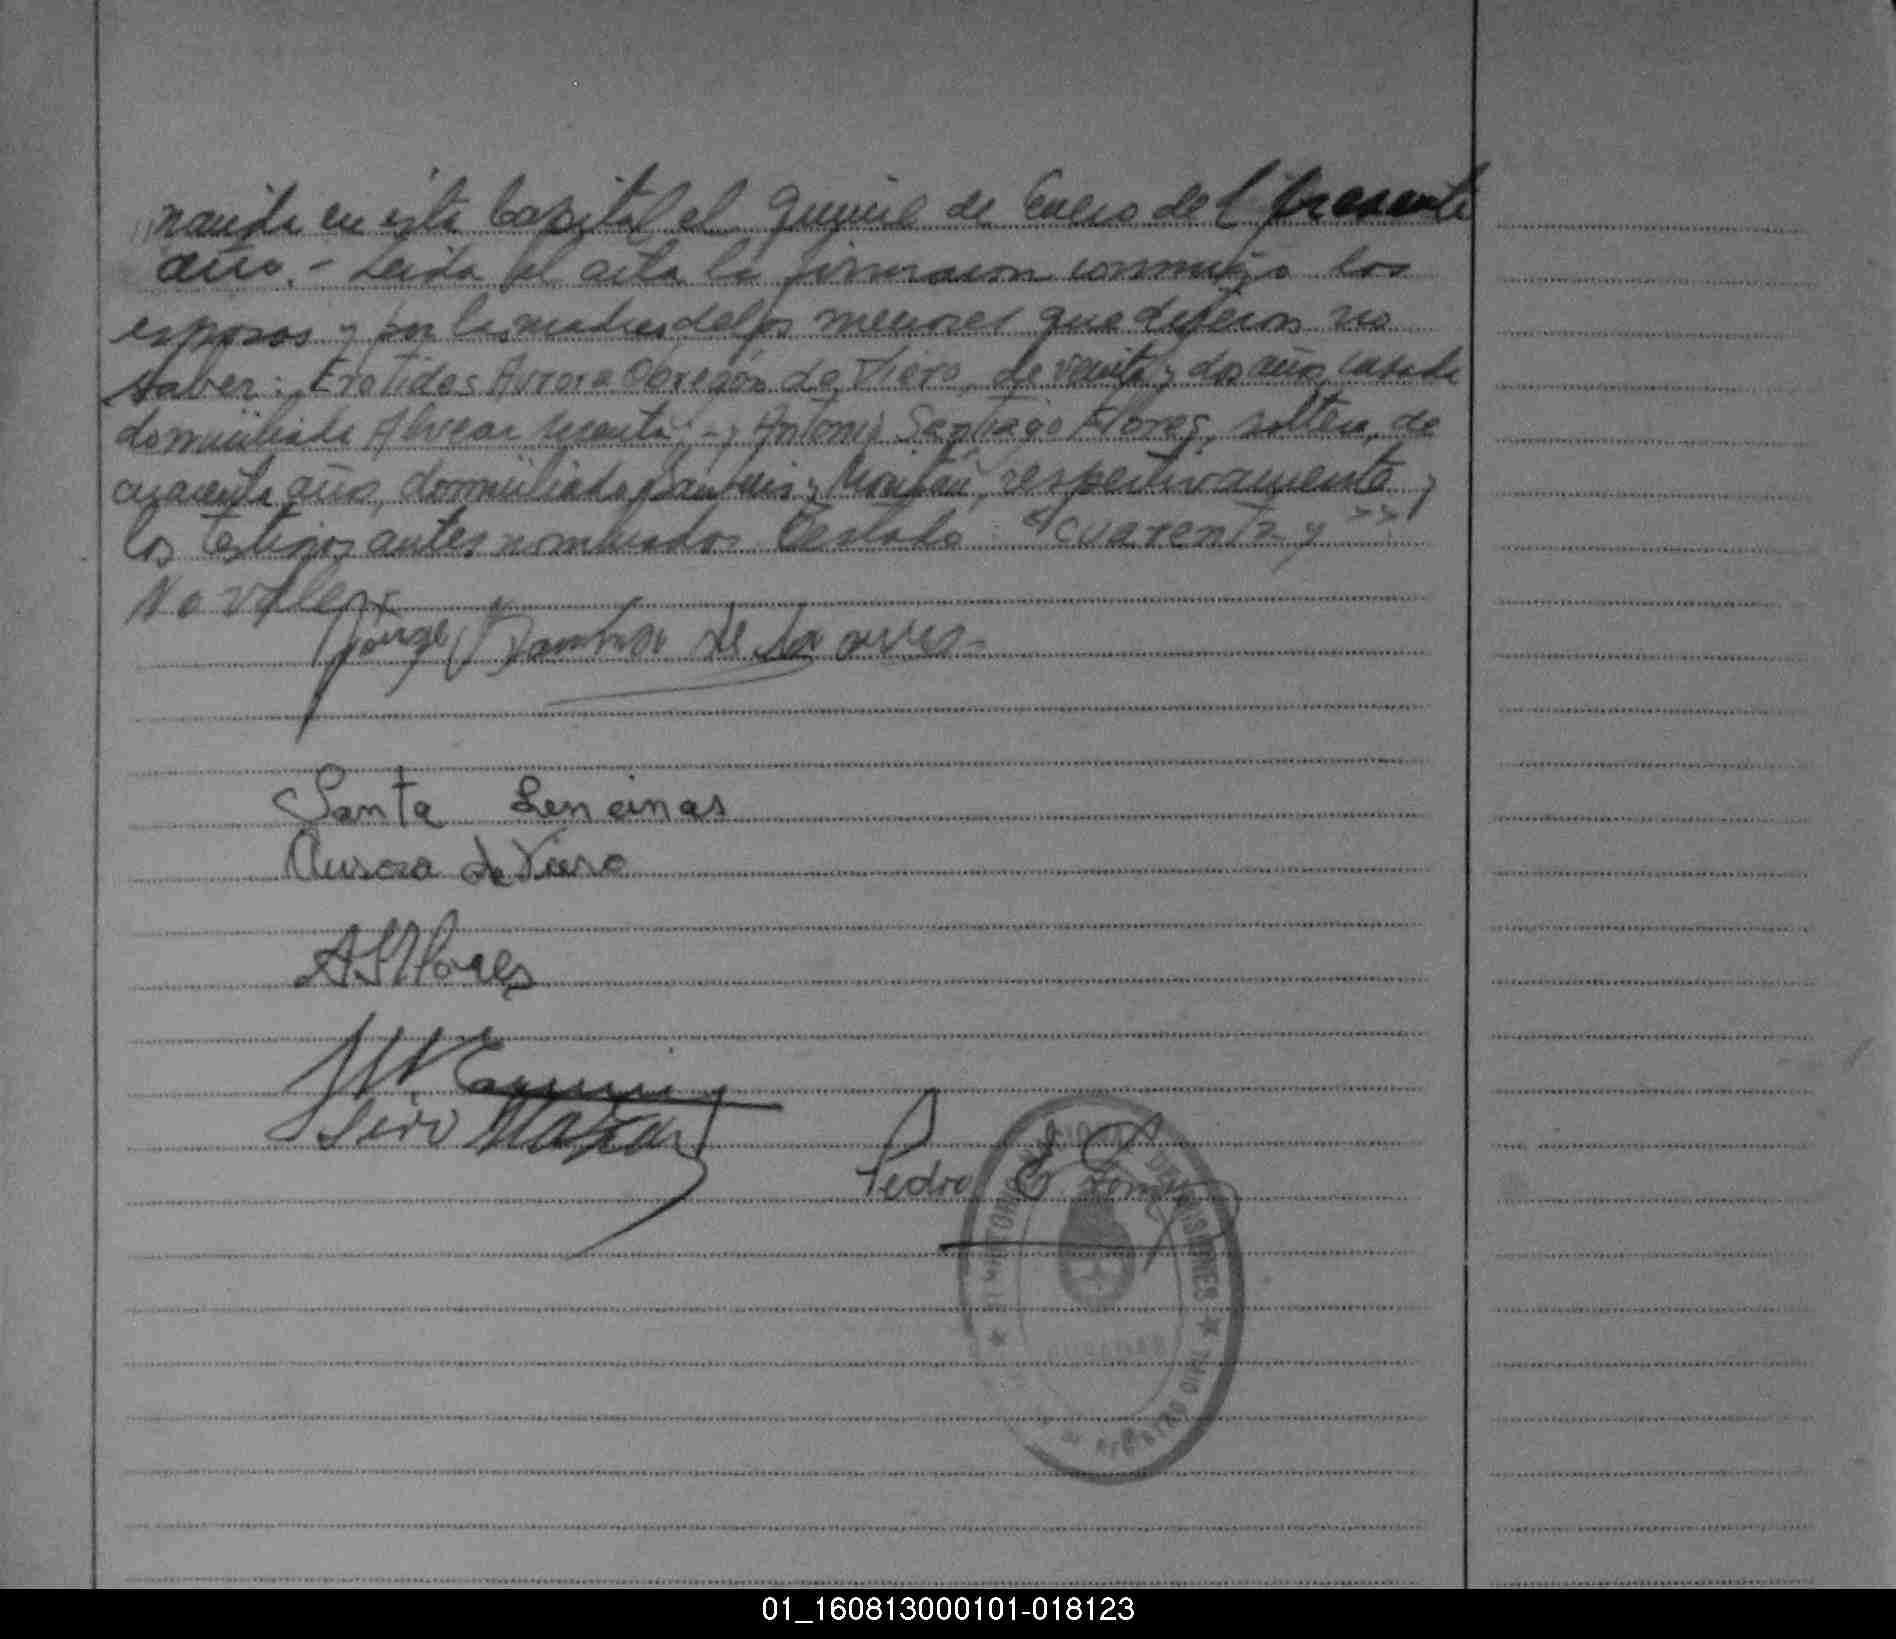 nacida en ésta Capital el quince de Enero del presente
año.- Leida el acta la firmaron conmigo los
esposos y por las madres de los menores que dijeron no
saber: Erotidas Aurora Obregón de Viero, de veinte y dos años, casada
domiciliada Alvear y Antonio Santiago Flores, soltero, de
cuarenta años, domiciliado San Luis y respectivamente y
los testigos antes nombrados Testado: "cuarenta y"
No vale.-
Jorge Ramón de la
Santa Lencinas
Aurora de Viero
A S Flores
Pedro E
TERRITORIO NACIONAL DE MISIONES
REGISTRO CIVIL
POSADAS
01_160813000101-018123